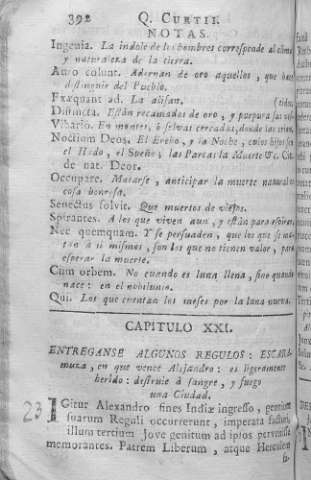 392 Q. CURTII.
NOTAS.
Ingenia. La indole de los hombres corresponde al clima
y naturaleza de la tierra.
Auro colunt. Adornan de oro aquellos, que
distinguir del Pueblo.
Exæquant ad. La alisan. (tidos.
Distincta. Están recamados de oro, y purpura sus ves-
Vibario. En montes, ò selvas cercadas, donde las crian.
Noctium Deos. El Erebo, y la Noche, cuios hijos son
el Hado, el Sueño; las Parcas la Muerte &c. Cic.
de nat. Deor.
Occupare. Matarse, anticipar la muerte natural es
cosa honrosa.
Senectus solvit. Que muertos de viejos.
Spirantes. A los que viven aun, y están para espirar.
Nec quemquam. Y se persuaden, que los que se ma-
tan à si mismos, son los que no tienen valor, para
esperar la muerte.
Cum orbem. No cuando es luna llena, sino quando
nace: en el novilunio.
Qui. Los que cuentan los meses por la luna nueva.
CAPITULO XXI.
ENTREGANSE ALGUNOS REGULOS: ESCARA-
muza, en que vence Alejandro: es ligeramente
herido: destruie à sangre, y fuego
una Ciudad.
23 IGitur Alexandro fines Indiæ ingresso, gentium
suarum Reguli occurrerunt, imperata facturi,
illum tertium Jove genitum ad ipsos pervenisse
memorantes. Patrem Liberum, atque Herculem